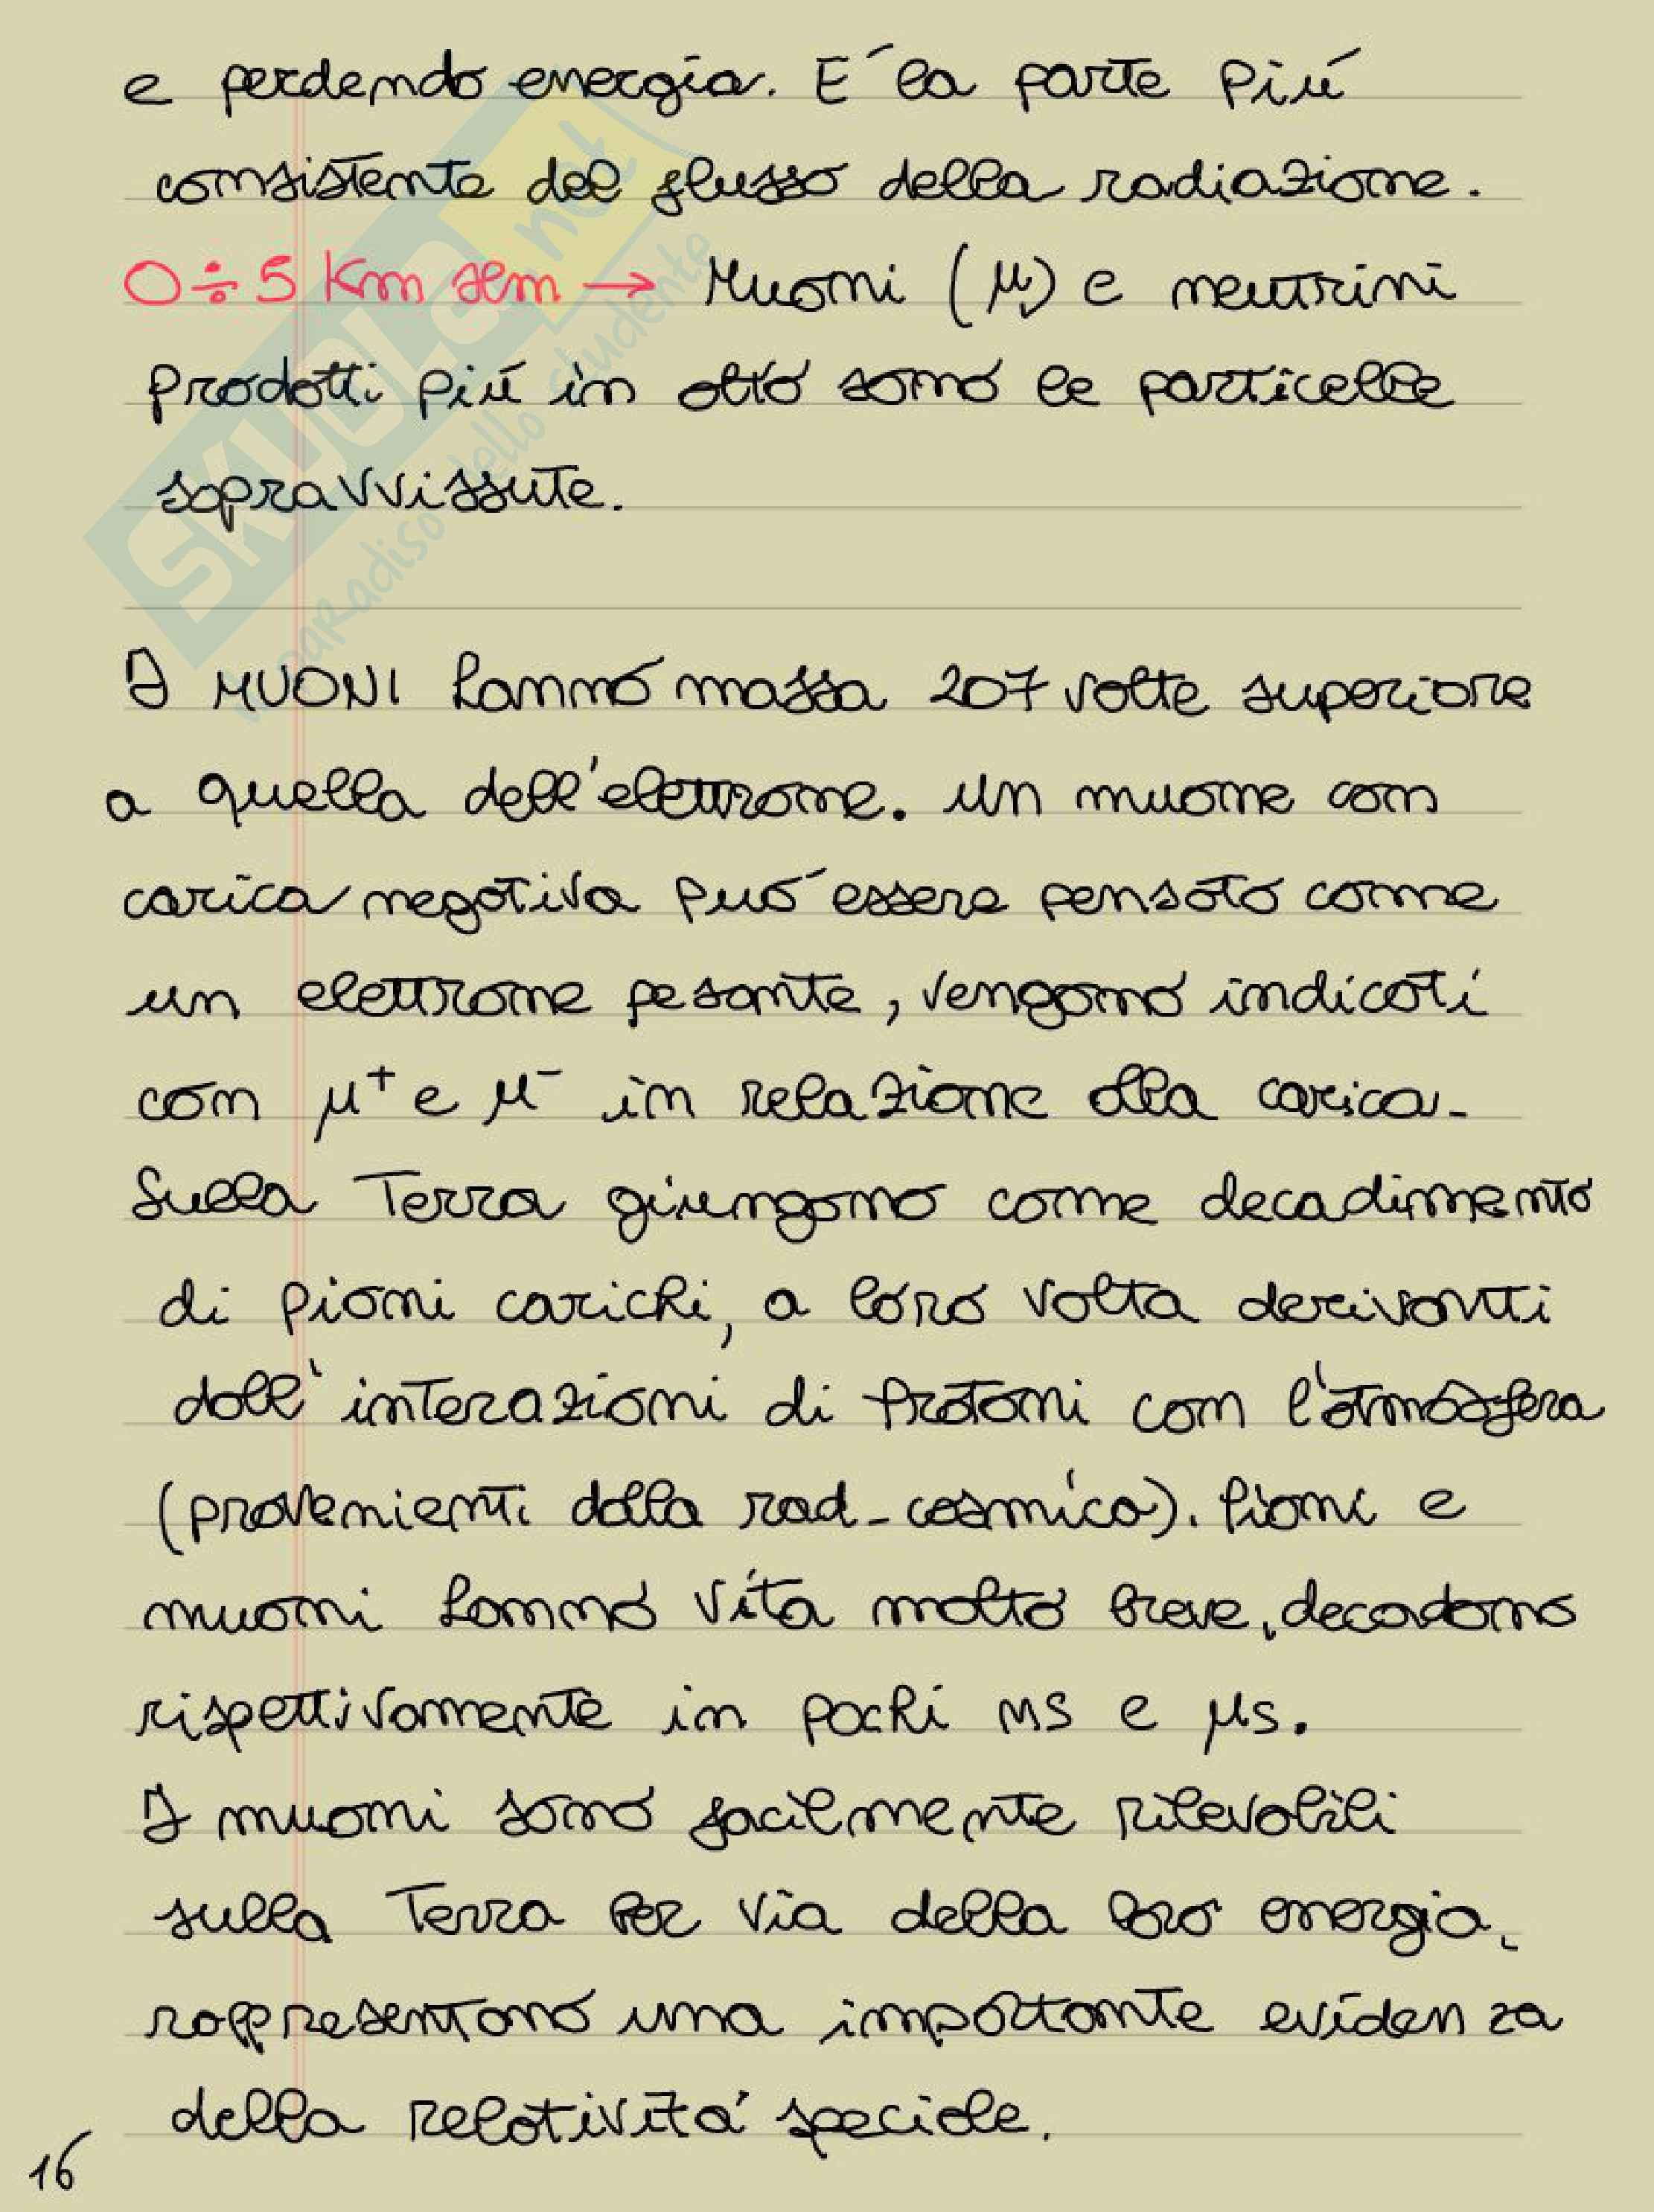 e perdendo energia. E´ la parte più
consistente del flusso della radiazione.
0÷5 Km slm → Muoni (μ) e neutrini
prodotti più in alto sono le particelle
sopravvissute.
I MUONI hanno massa 207 volte superiore
a quella dell'elettrone. Un muone con
carica negativa può essere pensato come
un elettrone pesante, vengono indicati
con μ⁺ e μ⁻ in relazione alla carica.
Sulla Terra giungono come decadimento
di pioni carichi, a loro volta derivanti
dall'interazioni di protoni con l'atmosfera
(provenienti dalla rad. cosmica). Pioni e
muoni hanno vita molto breve, decadono
rispettivamente in pochi ns e μs.
I muoni sono facilmente rilevabili
sulla Terra per via della loro energia,
rappresentano una importante evidenza
della relatività speciale.
16
SKUOLA.net
il paradiso dello studente